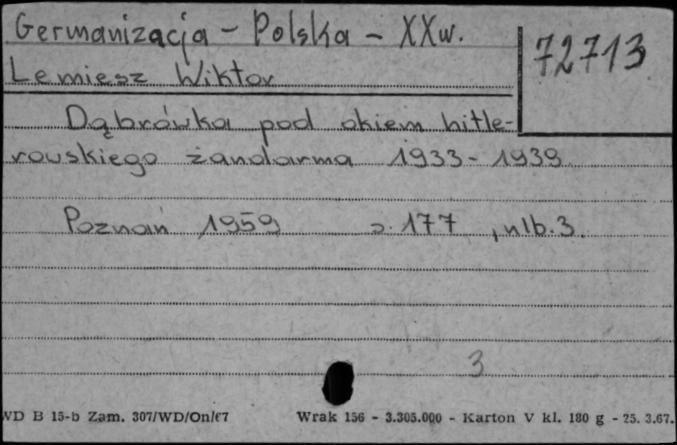 Germanizacja - Polska - XXw.
72713
Lemiesz Wiktor
Dąbrówka pod okiem hitle-
rowskiego żandarma 1933-1939
Poznań 1959 s. 177, nlb. 3.
3
WD B 15-b Zam. 307/WD/On/67 Wrak 156 - 3.305.000 - Karton V kl. 180 g - 25. 3.67.